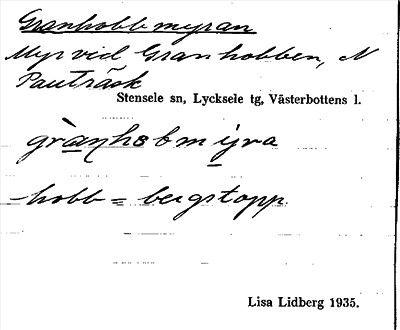 Granhobbmyran
Myr vid Granhobben, N
Pauträsk
Stensele sn, Lycksele tg, Västerbottens l.
gràn̥hobmýra
-hobb = bergstopp.
Lisa Lidberg 1935.